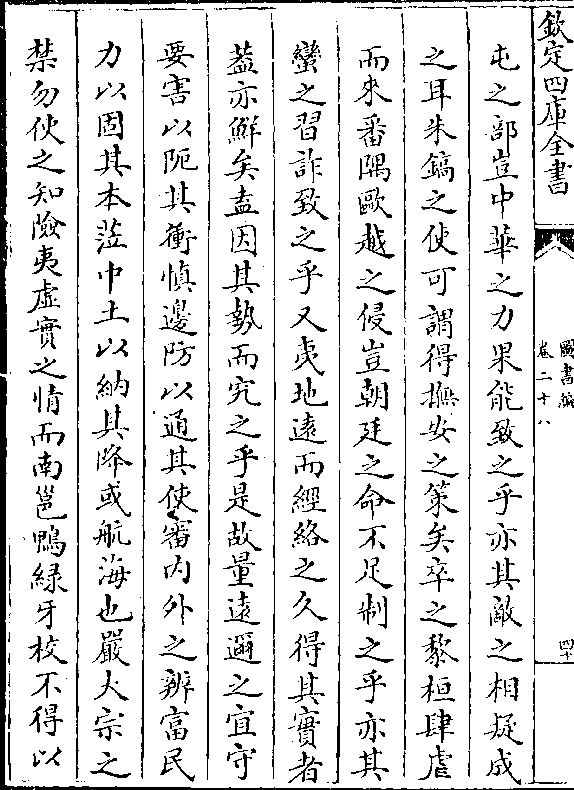 欽定四庫全書
圖書編
卷二十八
四十
屯之部豈中華之力果能致之乎亦其敵之相疑成
之耳朱鎬之使可謂得撫安之策矣卒之黎桓肆虐
而來番隅歐越之侵豈朝廷之命不足制之乎亦其
蠻之習詐致之乎又夷地遠而經絡之久得其實者
葢亦鮮矣盍因其勢而究之乎是故量遠邇之宜守
要害以阨其衝慎邊防以通其使審内外之辨富民
力以固其本蒞中土以納其降或航海也嚴大宗之
禁勿使之知險夷虛實之情而南邕鴨緑牙校不得以